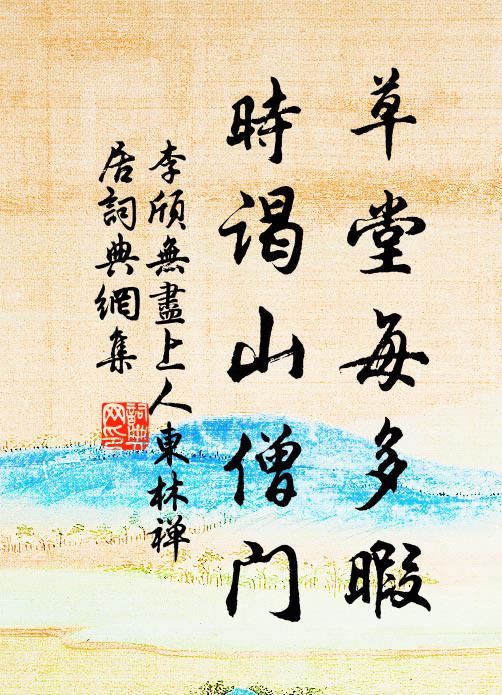 草堂每多暇
時谒山僧门
李颀無盡上人東林禅
居詞典網集
詞典
网印